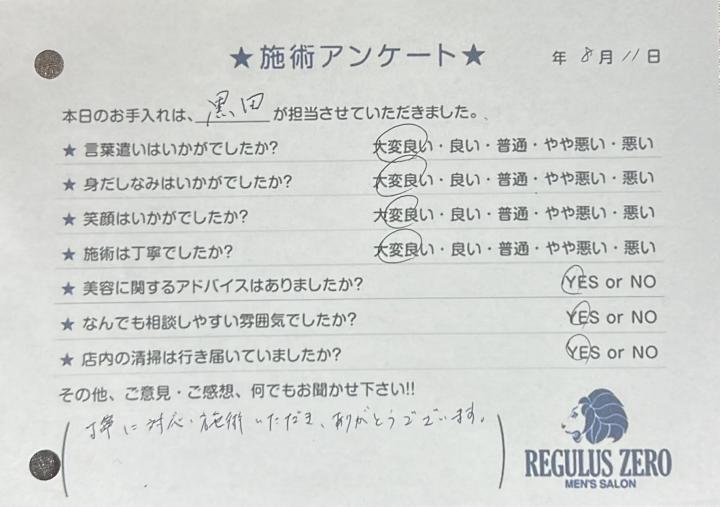 ★施術アンケート★
年 8月11日
本日のお手入れは、黒田が担当させていただきました。
★ 言葉遣いはいかがでしたか? 大変良い・良い・普通・やや悪い・悪い
★ 身だしなみはいかがでしたか? 大変良い・良い・普通・やや悪い・悪い
★ 笑顔はいかがでしたか? 大変良い・良い・普通・やや悪い・悪い
★ 施術は丁寧でしたか? 大変良い・良い・普通・やや悪い・悪い
★ 美容に関するアドバイスはありましたか? YES or NO
★ なんでも相談しやすい雰囲気でしたか? YES or NO
★ 店内の清掃は行き届いていましたか? YES or NO
その他、ご意見・ご感想、何でもお聞かせ下さい!!
丁寧に対応・施術いただき、ありがとうございます。
REGULUS ZERO
MEN'S SALON